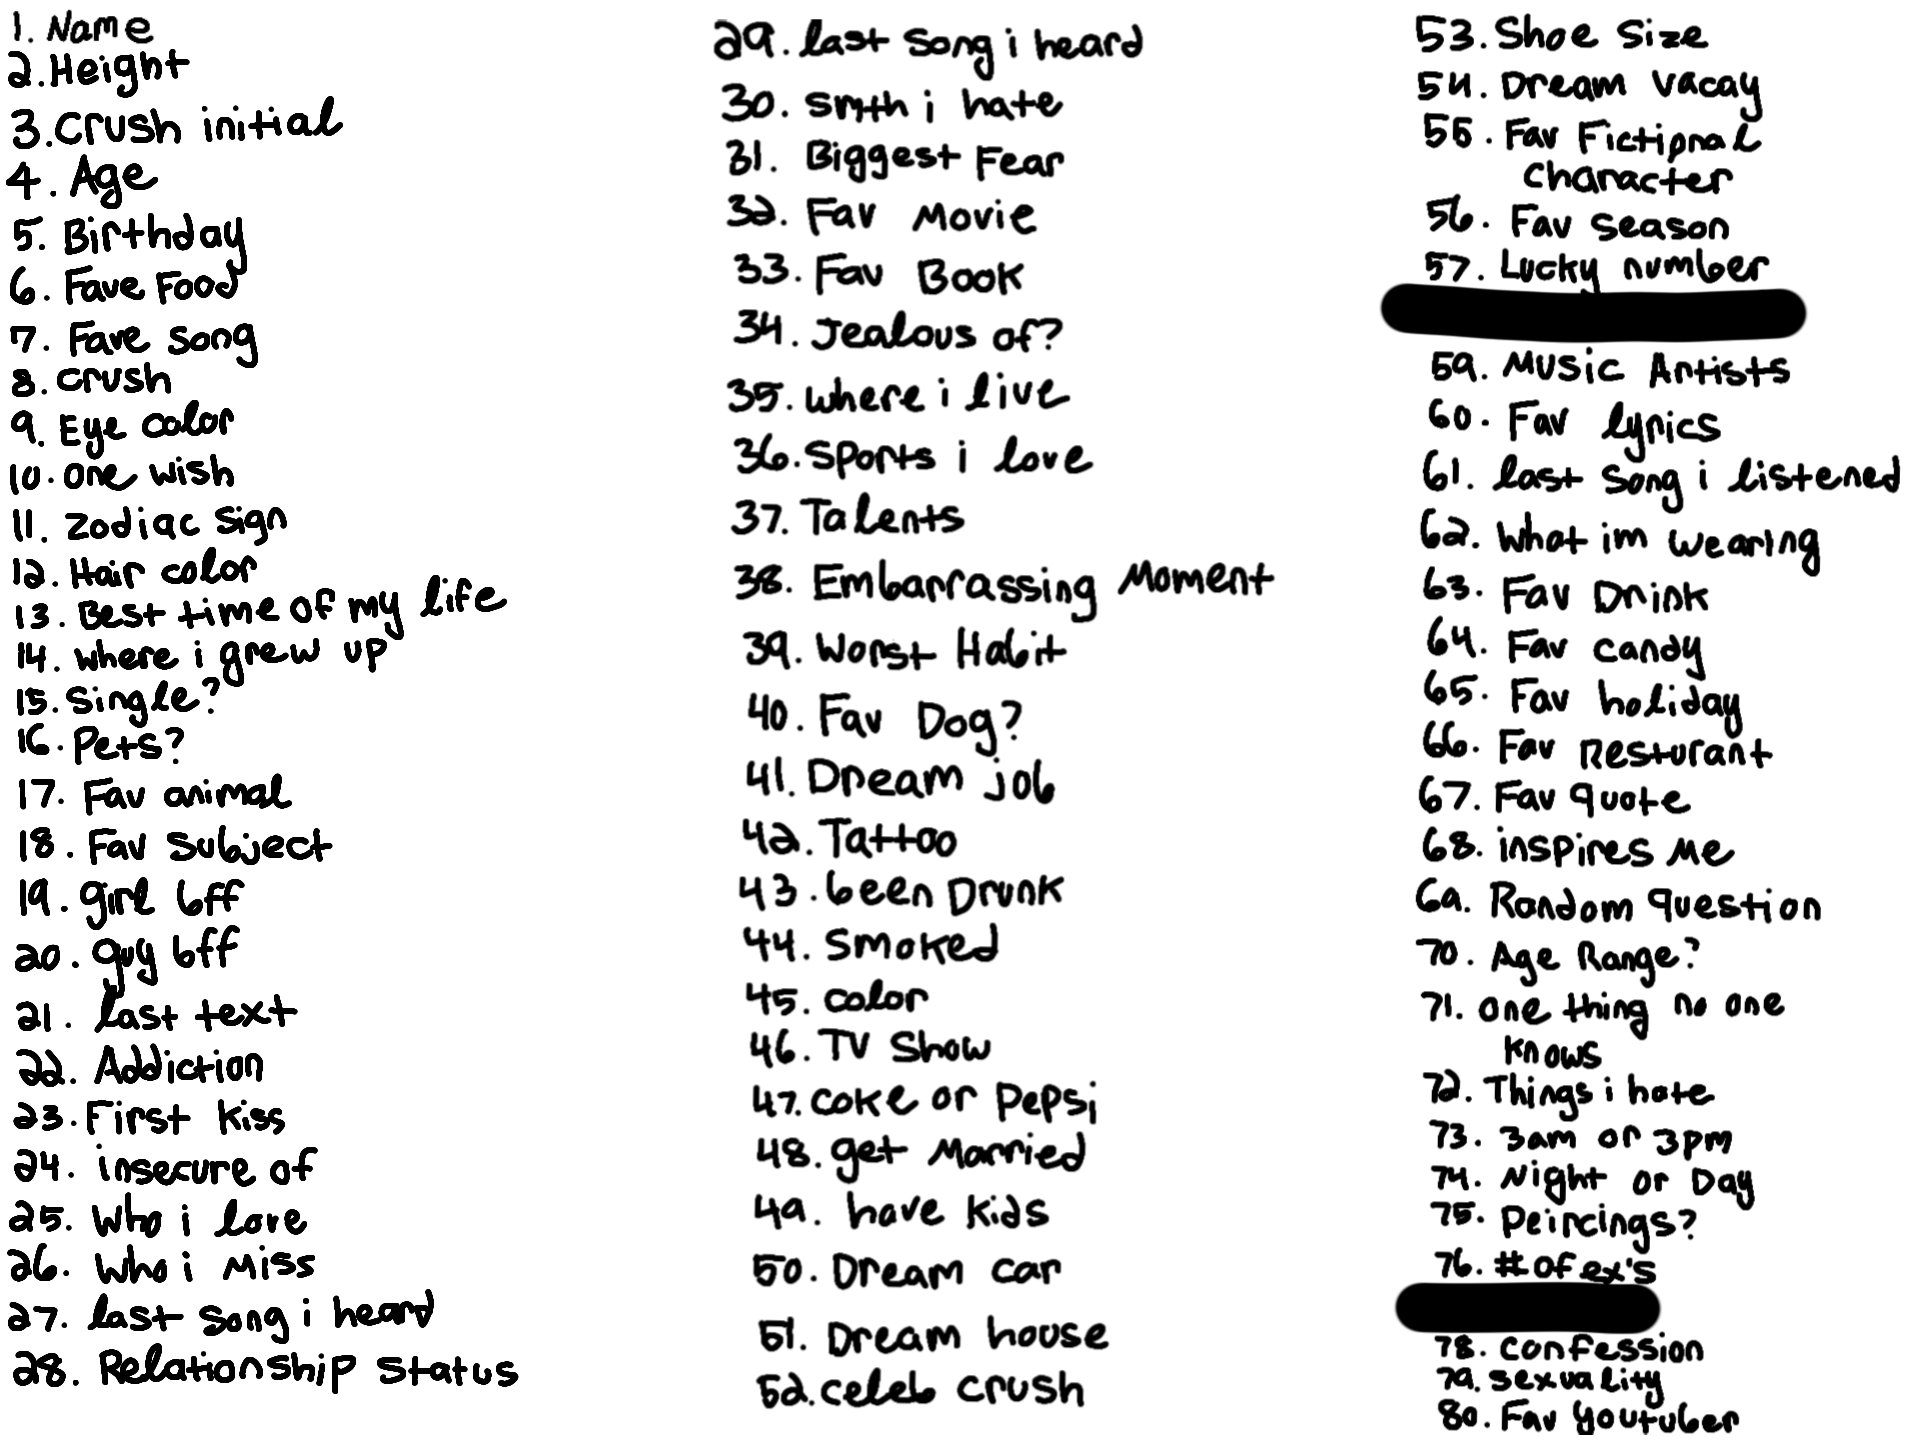 1. Name
2. Height
3. Crush initial
4. Age
5. Birthday
6. Fave Food
7. Fave song
8. crush
9. Eye color
10. one wish
11. zodiac sign
12. Hair color
13. Best time of my life
14. where i grew up
15. single?
16. Pets?
17. Fav animal
18. Fav subject
19. girl bff
20. guy bff
21. last text
22. Addiction
23. First kiss
24. insecure of
25. Who i love
26. Who i Miss
27. last song i heard
28. Relationship status
29. last song i heard
30. smth i hate
31. Biggest Fear
32. Fav Movie
33. Fav Book
34. Jealous of?
35. where i live
36. Sports i love
37. Talents
38. Embarrassing Moment
39. Worst Habit
40. Fav Dog?
41. Dream job
42. Tattoo
43. been Drunk
44. smoked
45. color
46. TV Show
47. coke or Pepsi
48. get Married
49. have kids
50. Dream car
51. Dream house
52. celeb crush
53. Shoe Size
54. Dream vacay
55. Fav Fictional
character
56. Fav season
57. Lucky number
59. Music Artists
60. Fav lyrics
61. last song i listened
62. What im wearing
63. Fav Drink
64. Fav candy
65. Fav holiday
66. Fav Resturant
67. Fav quote
68. inspires me
69. Random question
70. Age Range?
71. one thing no one
knows
72. Things i hate
73. 3am or 3pm
74. Night or Day
75. Peircings?
76. # of ex's
78. confession
79. sexuality
80. Fav youtuber